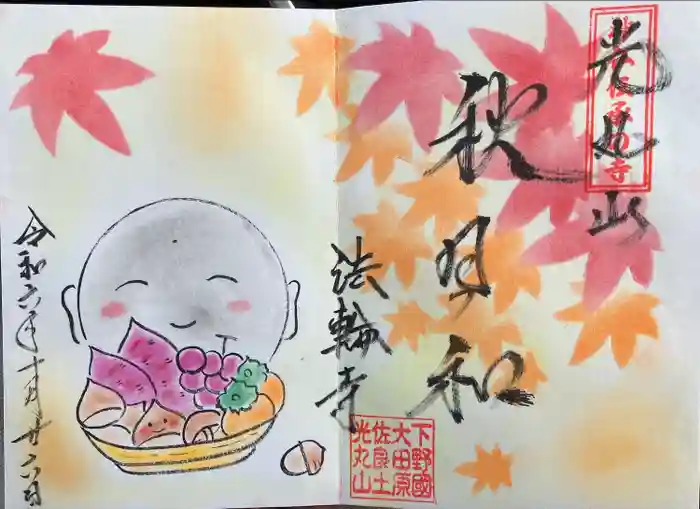 光丸山
秋日和
法輪寺
下野國
大田原
佐良土
光丸山
令和六年十月廿六日